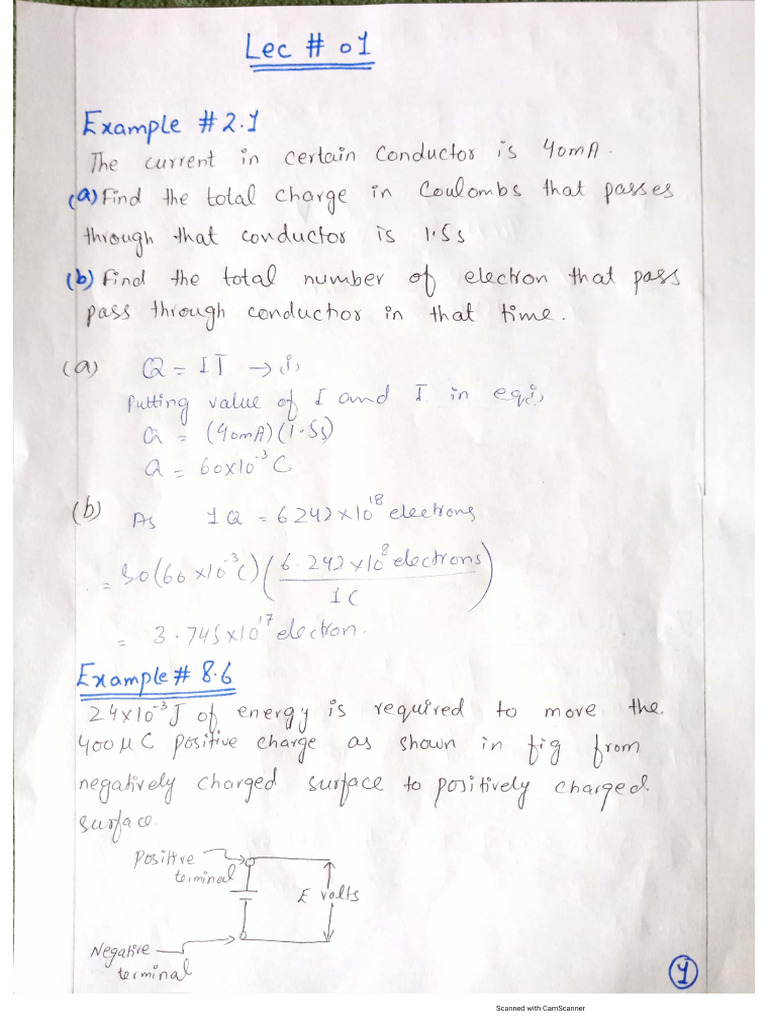 Lec # 01
Example # 2.1
The current in certain conductor is 40mA.
(a) Find the total charge in Coulombs that passes
through that conductor is 1.5s
(b) Find the total number of electron that pass
pass through conductor in that time.
(a) Q = IT → i,
Putting value of I and T in eq i,
Q = (40mA)(1.5s)
Q = 60x10⁻³ C
(b) As 1Q = 6242x10¹⁸ electrons
= 30(60x10⁻³C)(6.242x10⁸electrons / 1C)
= 3.745x10¹⁷ electron.
Example # 8.6
24x10⁻³J of energy is required to move the
400μC positive charge as shown in fig from
negatively charged surface to positively charged
surface.
Positive terminal
E volts
Negative terminal
1
Scanned with CamScanner